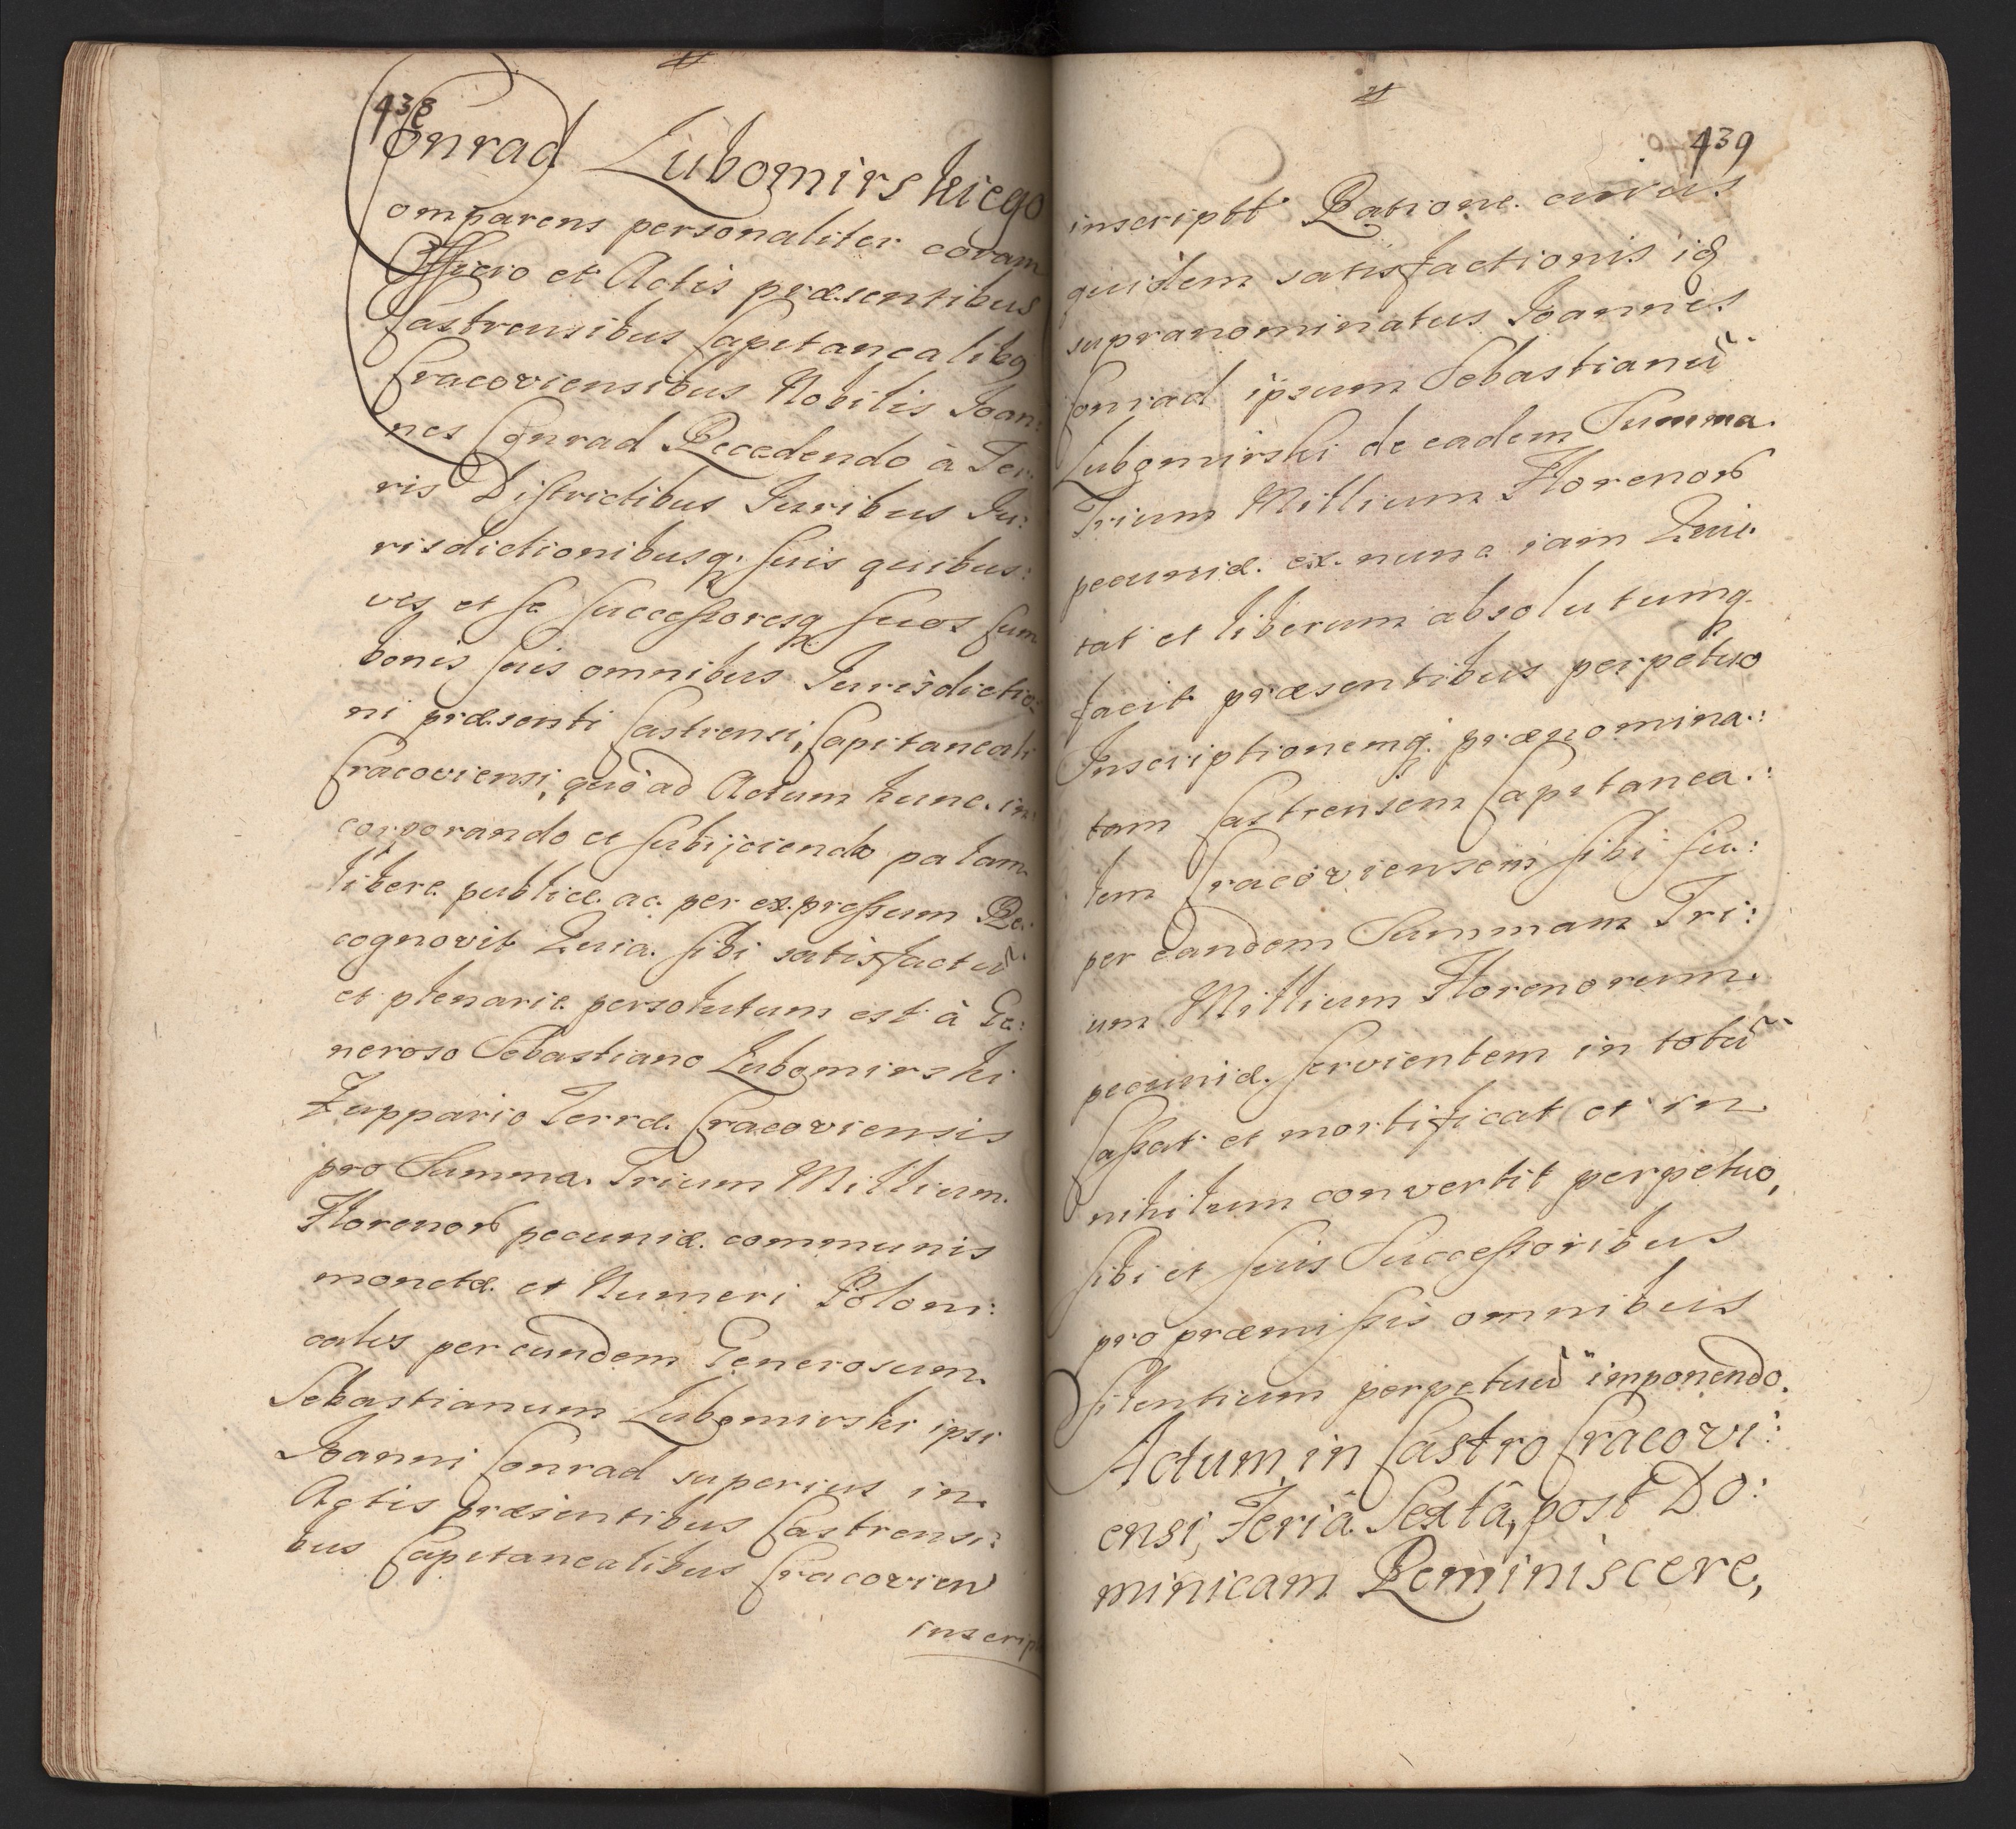 438
Conrad Lubomirskiego
omparens personaliter coram
Officio et Actis præsentibus
Castrensibus Capitanealibq
Cracoviensibus Nobilis Joan:
nes Conrad Recedendo à Ter:
ris Districtibus Juribus Ju:
risdictionibusq; suis quibus:
vis et se successoresq suos cum
bonis suis omnibus Jurisdictio:
ni præsenti Castrensi, Capitaneali
Cracoviensi, quo ad Actum hunc in:
corporando et subijciendo palam
libere publice ac per expressum Re:
cognovit Quia sibi satisfactū
et plenarie persolutum est à Ge:
neroso Sebastiano Lubomirski
Zuppario Terræ Cracoviensis
pro Summa Trium Millium
Florenor pecuniæ communis
monetæ et Numeri Poloni:
calis per eundem Generosum
Sebastianum Lubomirski ipsi
Joanni Conrad superius in
Actis præsentibus Castrensi:
bus Capitanealibus Cracovien
inscript
439
inscriptt Ratione cuius
quidem satisfactionis iq
supranominatus Joannes
Conrad ipsum Sebastianū
Lubomirski de eadem Summa
Trium Millium Florenor
pecuniæ ex nunc iam Qui:
tat et liberum absolutumq
facit præsentibus perpetuo
Inscriptionemq; prænomina:
tam Castrensem Capitanea:
lem Cracoviensem sibi su:
per eandem Summam Tri:
um Millium Florenorum
pecuniæ servientem in totū
Cassat et mortificat et in
nihilum convertit perpetuo,
sibi et suis Successoribus
pro præmissis omnibus
silentium perpetuū imponendo.
Actum in Castro Cracovi:
ensi, Feriâ Sextâ, post Do:
minicam Reminiscere,